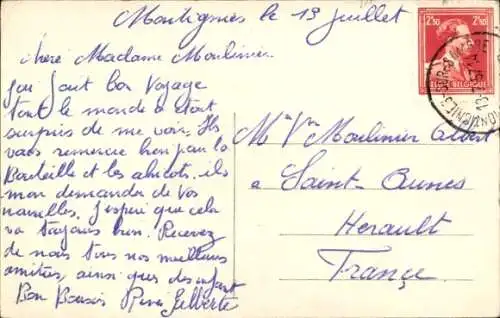 Montignies le 19 juillet
chère Madame Moulinier
jai fait bon voyage
tout le monde a était
surpris de me voir. Ils
vous remercie bien pour la
Bouteille et les abricots. ils
mon demander de vos
nouvelles. J'espère que cela
va toujours bien. Recevez
de nous tous nos meilleurs
amitiés, ainsi que des enfant
Bon Baisers Gilberte
2F50 2F50
BELGIQUE
Mr Vve Moulinier Albert
a Saint-Aunes
Herault
France